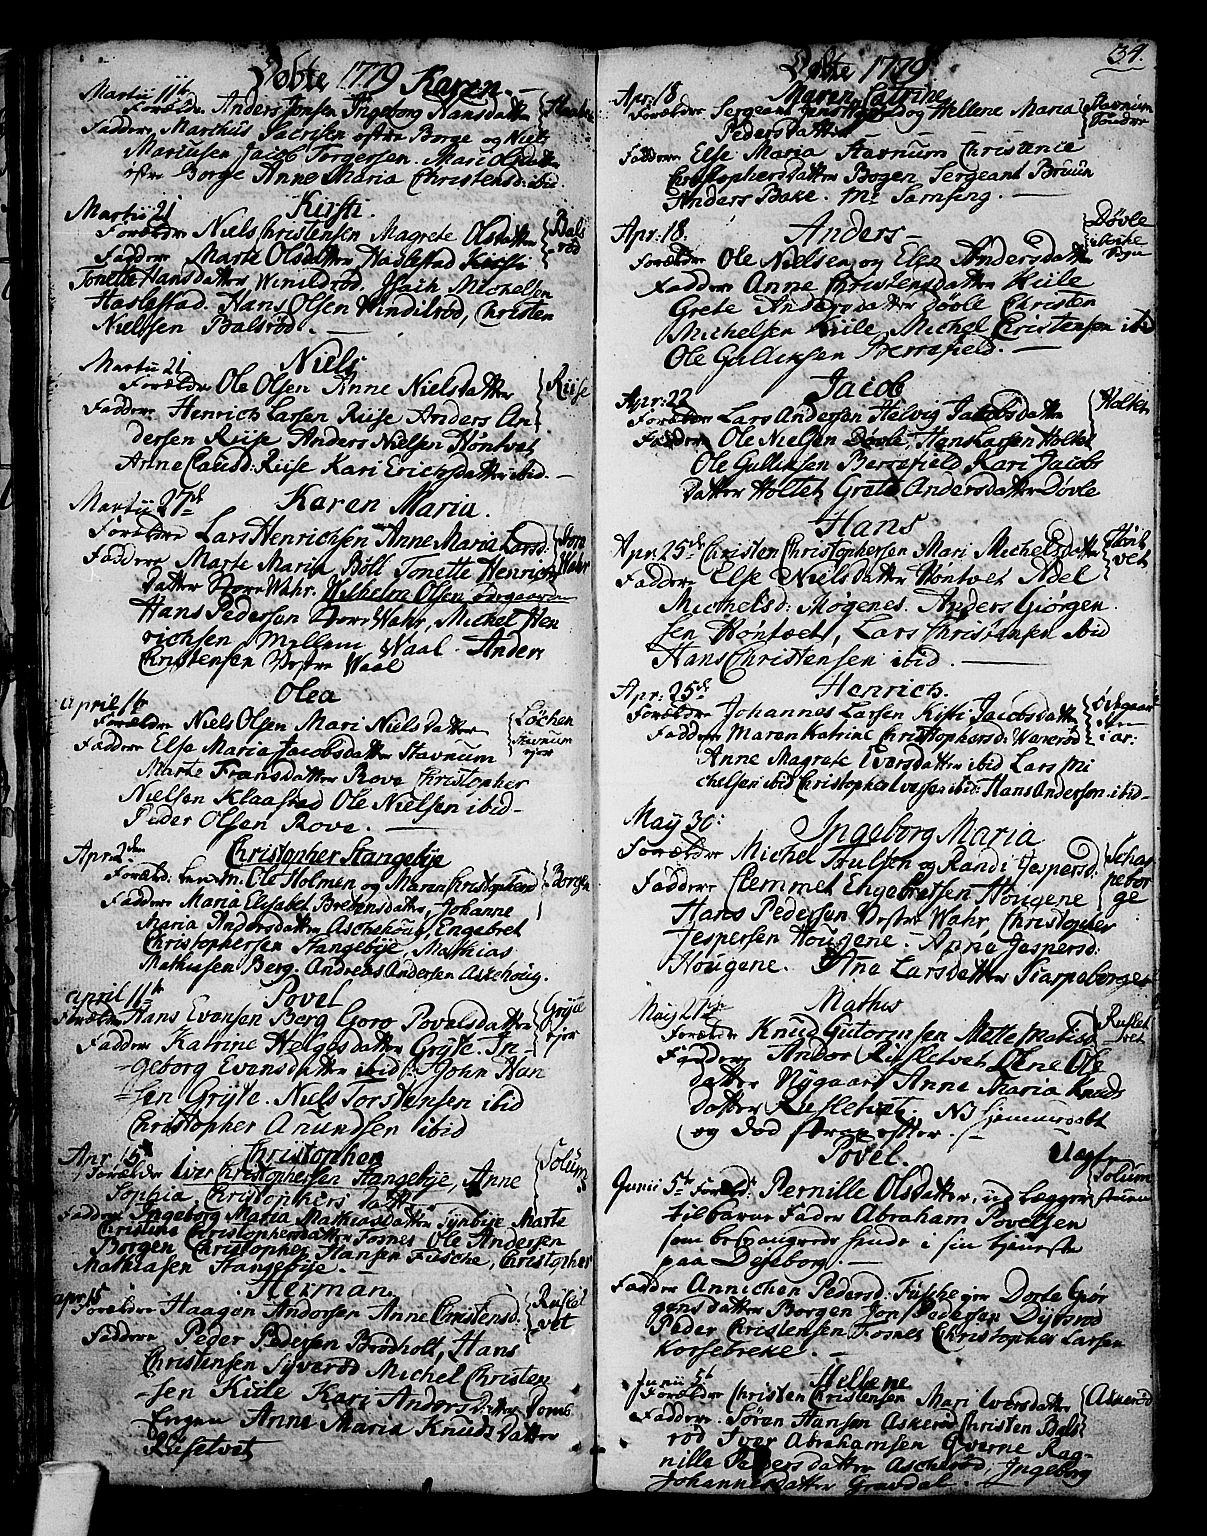 Døbte 1779 Karen.
Martii 11te
Forældre Anders Jonsen Ingeborg Hansdatter
Faddere Marthis Jacobsen østre Borge og Niels
Mariusen Jacob Torgersen. Mari
østre Borge Anne Maria Christensd: ibid.
Kirsti.
Martii 21
Forældre Niels Christensen Magrete Olsdatter Balsrød
Faddere Marte Olsdatter Haslestad
Tonette Hansdatter Windilrød, Isach Michelsen
Haslestad. Hans Olsen Windilrød, Christen
Nielssen Balsrød.
Niels
Martii 21
Forældre Ole Olsen Anne Nielsdatter Riise
Faddere Henrich Larsen Riise Anders An-
dersen Riise Anders Nielsen Høntvet
Anne Clausd: Riise Kari Erichsdatter ibid.
Karen Maria.
Martii 27de
Forældre Lars Henrichsen Anne Maria Larsd: Store Wahr
Faddere Marte Maria Böll Tonette Henrichs
datter Store Wahr. Wilhelm Olsen
Hans Pedersen Store Wahr, Michel Hen
richsen Mellem Waal. Anders
Christensen Vestre Waal
Olea
april 1te
Forældre Niels Olsen Mari Nielsdatter Løchen Stavnum ejer
Faddere Else Maria Jacobsdatter Stavnum
Marte Fransdatter Rove Christopher
Nielsen Klaastad Ole Nielsen ibid-
Peder Olsen Rove.
Christopher Stangebÿe
Apr: 2den
Foræld: Ole Holmen og Maren Christophersd Borgen
Faddere Maria Elisabet Bredensdatter, Johanne
Maria Andersdatter Aschehoug, Engebret
Christophersen Stangebÿe, Mathias
Mathiesen Berg. Andreas Andersen Askehoug.
Povel
april 11te
Forældre Hans Evensen Berg Goro Povelsdatter Grÿte ejer
Faddere Katrine Helgesdatter Grÿte. In-
geborg Evensdatter ibid: John Han
sen Grÿte. Niels Torstensen ibid
Christopher Anundsen ibid
Christopher
Apr. 15
Forældre Iver Christophersen Stangebÿe, Anne Solum
Sophia Christophers datter
Faddere Ingeborg Maria Mathiasdatter Sÿnbÿe Marte
Christine Christophersdatter Fosnes Ole Andersen
Borgen Christopher Hansen Fusche, Christopher
Mathiasen Stangebÿe.
Herman.
apr 15
Forældre Haagen Andersen Anne Christensd. Rusletvet
Faddere Peder Pedersen Brødholt, Hans
Christensen Sÿverød Michel Christen
sen Kiile Kari Andersdatter Toms
Engen Anne Maria Knuds datter
Rusletvet
34.
Døbte 1779
Maren Catrine
Apr: 18
Forældre Sergeant og Hellene Maria Stavnum Søndre
Pedersdatter
Faddere Else Maria Stavnum Christence
Christophersdatter Bogen Sergeant Bruun
Anders Bake. Mr Samsing.
Anders
Apr: 18.
Forældre Ole Nielsen og Elen Andersdatter Døvle
Faddere Anne Christensdatter Kiile
Grete Andersdatter Døvle Christen
Michelsen Kiile, Michel Christensen ibid
Ole Gulliksen Berrefield.
Jacob
Apr: 22
Forældre Lars Andersen Helvig Jacobsdatter Holtet
Faddere Ole Nielsen Døvle, Hans Larsen Holtet
Ole Gulliksen Berrefield Kari Jacobs
datter Holtet Grete Andersdatter Døvle
Hans
Apr: 25de Christen Christophersen Mari Michelsdatter Høntvet
Faddere Else Nielsdatter Høntvet Adel
Michelsd: Møgenes. Anders Giørgen
sen Høntvet, Lars Christensen ibid
Hans Christensen ibid.
Henrich.
Apr: 25de
Forældre Johannes Larsen Kisti Jacobsdatter
Faddere Maren Katrine Christophersd: Warerød
Anne Magrete Eversdatter ibid Lars Mi
chelsen ibid Christopher Iversen ibid: Hans Andersen ibid-
Ingeborg Maria
Maÿ 30:
Forældre Michel Trulsen og Randi Jespersd: Scharpeborge
Faddere Clemmet Engebretsen Hougene
Hans Pedersen Vestre Wahr, Christopher
Jespersen Hougene. Anne Jespersd:
Hougene. Ane Larsdatter Skarpeborge
Mathis
Maÿ
Forældre Knud Gutormsen Mette Mathisd Rusletvet
Faddere Andor Rusletvet Lene Ole
datter Nygaard Anne Maria Knuds
datter Rusletvet. NB hjemmedøbt
og død strax efter.
Povel. Uegte
Junii 5te Foræld: Pernille Olsdatter, udlægger Solum
til barne Fader Abraham Povelsen
som
paa
Faddere Annichen Pedersd: Füsche ejer Dorte Giør
gensdatter Borgen Jon Pedersen
Peder Christensen Fosnes Christopher Larsen
Korsebreke.
Hellene
Junii 5te
Forældre Christen Christensen Mari Iversdatter Askerød
Faddere. Søren Hansen Askerød Christen Bals
rød Iver Abrahamsen Qverne Rag-
nille Pedersdatter Ascherød, Ingeborg
Johannesdatter Gravdal.